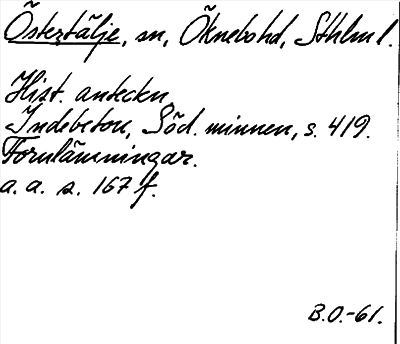 Östertälje, sn, Öknebo hd, Sthlm l.
Hist. anteckn
Indebetou, Söd. minnen, s. 419.
Fornlämningar.
a. a. s. 167 f.
B.O.-61.